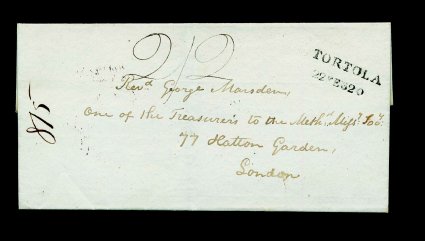 2/2
TORTOLA
22 FE 820
Revd. George Marsden,
One of the Treasurers to the Methd. Missy. Socy.
77 Hatton Garden,
London